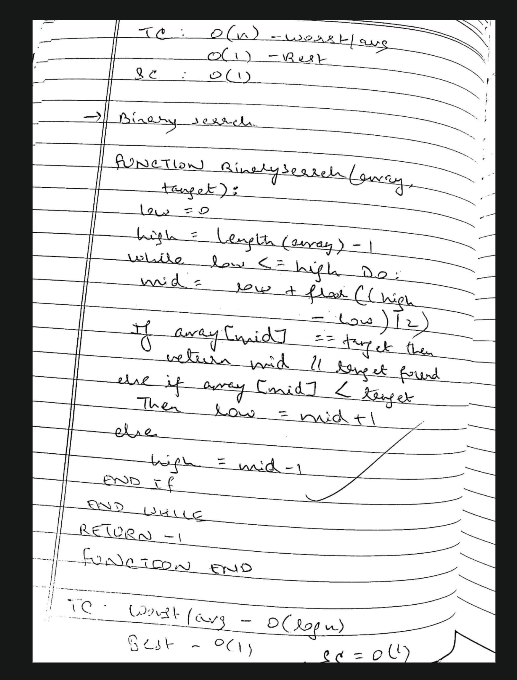 TC : O(n) - worst/avg
O(1) - Best
SC : O(1)
→ Binary search
FUNCTION Binarysearch (array,
target):
low = 0
high = length (array) - 1
while low <= high DO:
mid = low + floor ((high
- low) / 2)
If array [mid] == target then
return mid // target found
else if array [mid] < target
Then low = mid + 1
else
high = mid - 1
END If
END WHILE
RETURN -1
FUNCTION END
TC : Worst/avg - O(log n)
Best - O(1) SC = O(1)